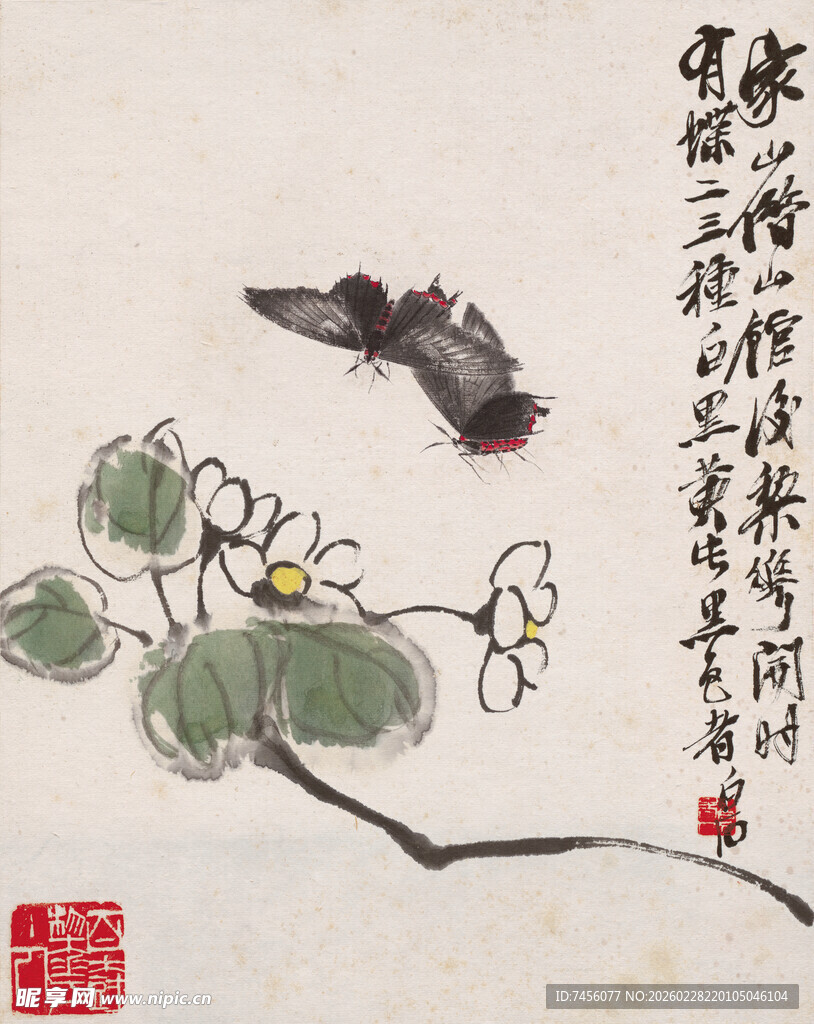 家山借山館後梨華開时
有蝶二三種白黑黃此黑色者
白石
昵享网 www.nipic.cn
ID:7456077 NO:20260228220105046104